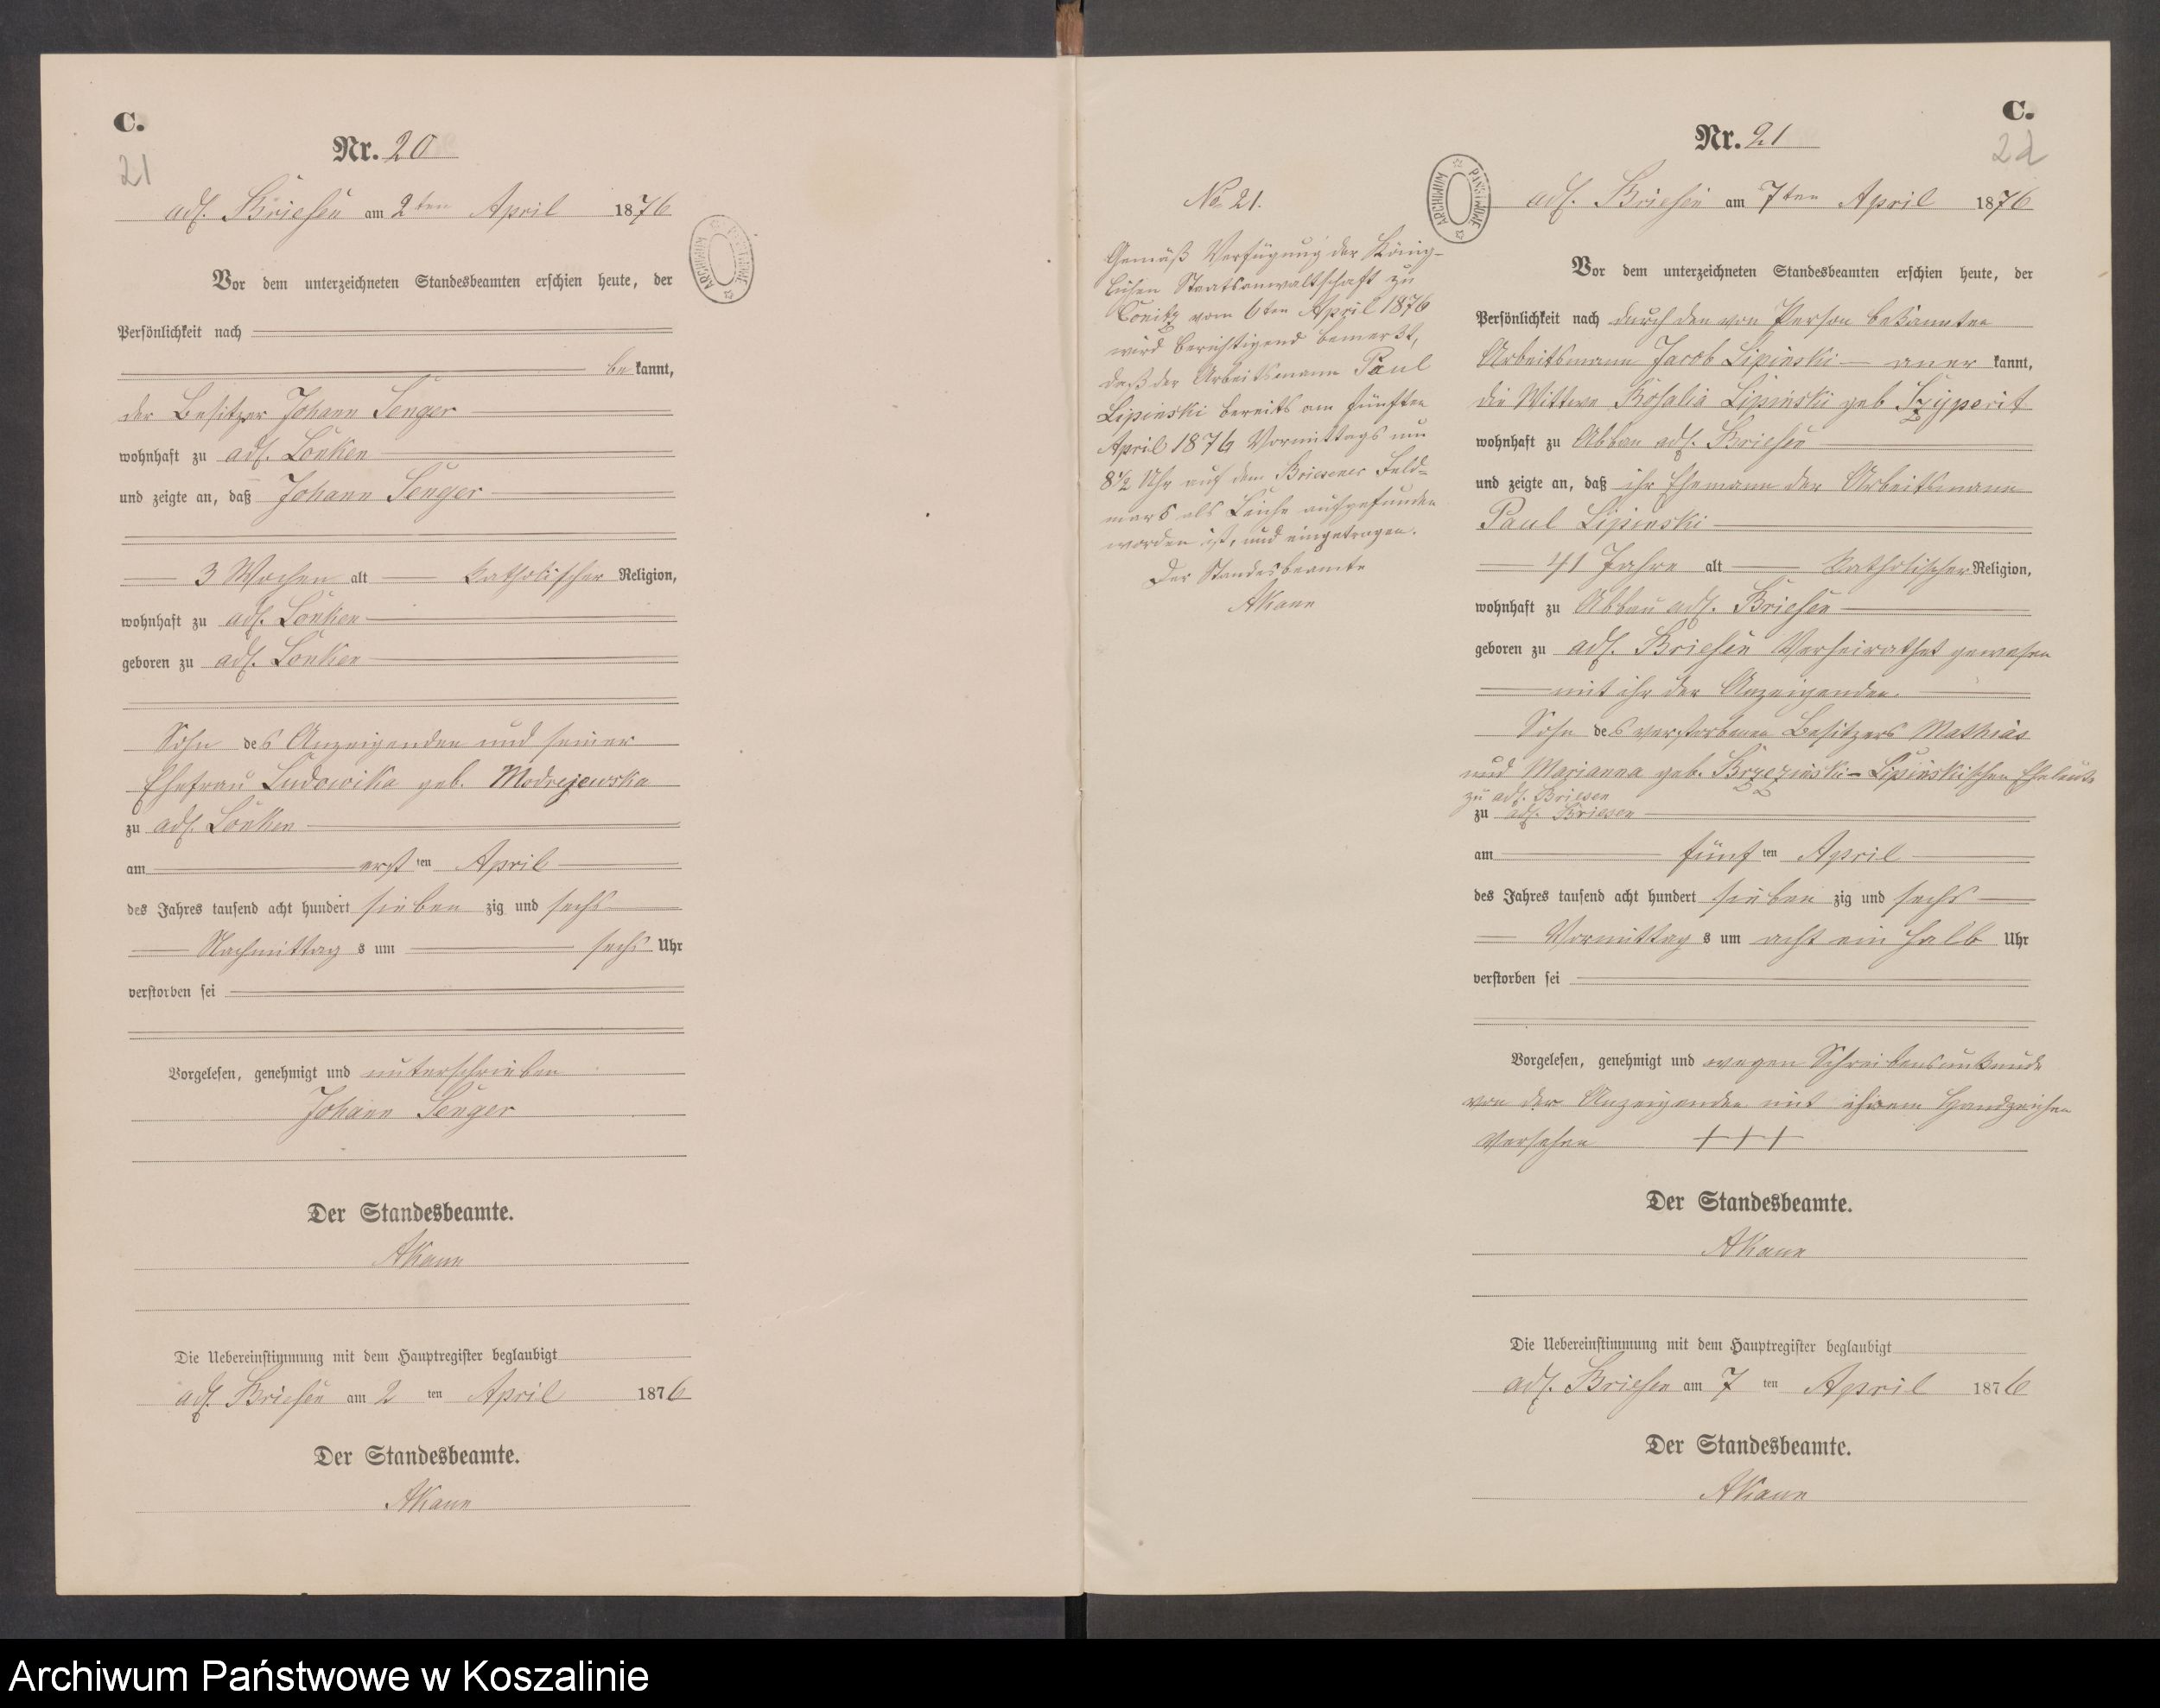 C.
21
Nr. 20
adl. Briesen am 2ten April 1876
Vor dem unterzeichneten Standesbeamten erschien heute, der
Persönlichkeit nach
bekannt,
der Besitzer Johann Senger
wohnhaft zu adl. Lonken
und zeigte an, daß Johann Senger
3 Wochen alt katholischer Religion,
wohnhaft zu adl. Lonken
geboren zu adl. Lonken
Sohn des Anzeigenden und seiner
Ehefrau Ludowika geb. Modrejewska
zu adl. Lonken
am ersten April
des Jahres tausend acht hundert siebenzig und sechs
Nachmittags um sechs Uhr
verstorben sei
Vorgelesen, genehmigt und unterschrieben
Johann Senger
Der Standesbeamte.
AKann
Die Uebereinstimmung mit dem Hauptregister beglaubigt
adl. Briesen am 2ten April 1876
Der Standesbeamte.
AKann
No 21.
Gemäß Verfügung der König-
lichen Staatsanwaltschaft zu
Conitz vom 6ten April 1876
wird berichtigend bemerkt,
daß der Arbeitsmann Paul
Lipinski bereits am fünften
April 1876 Vormittags um
8½ Uhr auf dem Briesener Feld-
mark als Leiche aufgefunden
worden ist, und eingetragen.
Der Standesbeamte
AKann
ARCHIWUM PAŃSTWOWE
C.
22
Nr. 21
adl. Briesen am 7ten April 1876
Vor dem unterzeichneten Standesbeamten erschien heute, der
Persönlichkeit nach durch den von Person bekannten
Arbeitsmann Jacob Lipinski anerkannt,
die Wittwe Rosalia Lipinski geb Szyperit
wohnhaft zu Abbau adl. Briesen
und zeigte an, daß ihr Ehemann der Arbeitsmann
Paul Lipinski
41 Jahre alt katholischer Religion,
wohnhaft zu Abbau adl. Briesen
geboren zu adl. Briesen Verheirathet gewesen
mit ihr der Anzeigenden.
Sohn des verstorbenen Besitzers Mathias
und Marianna geb. Brzezinski-Lipinskischen Eheleute
zu adl. Briesen
zu adl. Briesen
am fünften April
des Jahres tausend acht hundert siebenzig und sechs
Vormittags um acht ein halb Uhr
verstorben sei
Vorgelesen, genehmigt und wegen Schreibensunkunde
von der Anzeigenden mit ihrem Handzeichen
versehen +++
Der Standesbeamte.
AKann
Die Uebereinstimmung mit dem Hauptregister beglaubigt
adl. Briesen am 7ten April 1876
Der Standesbeamte.
AKann
Archiwum Państwowe w Koszalinie